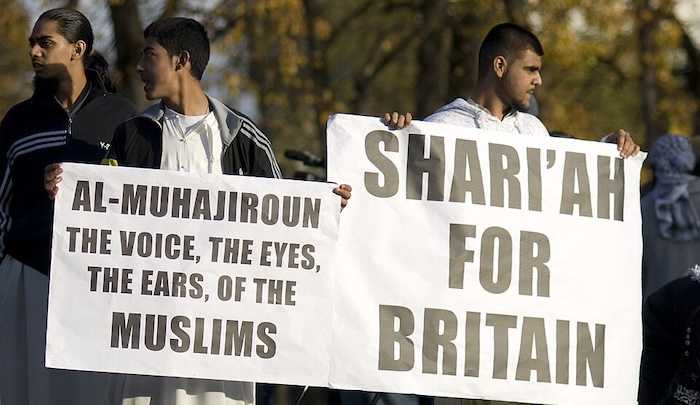 AL-MUHAJIROUN
THE VOICE, THE EYES,
THE EARS, OF THE
MUSLIMS
SHARI'AH
FOR
BRITAIN